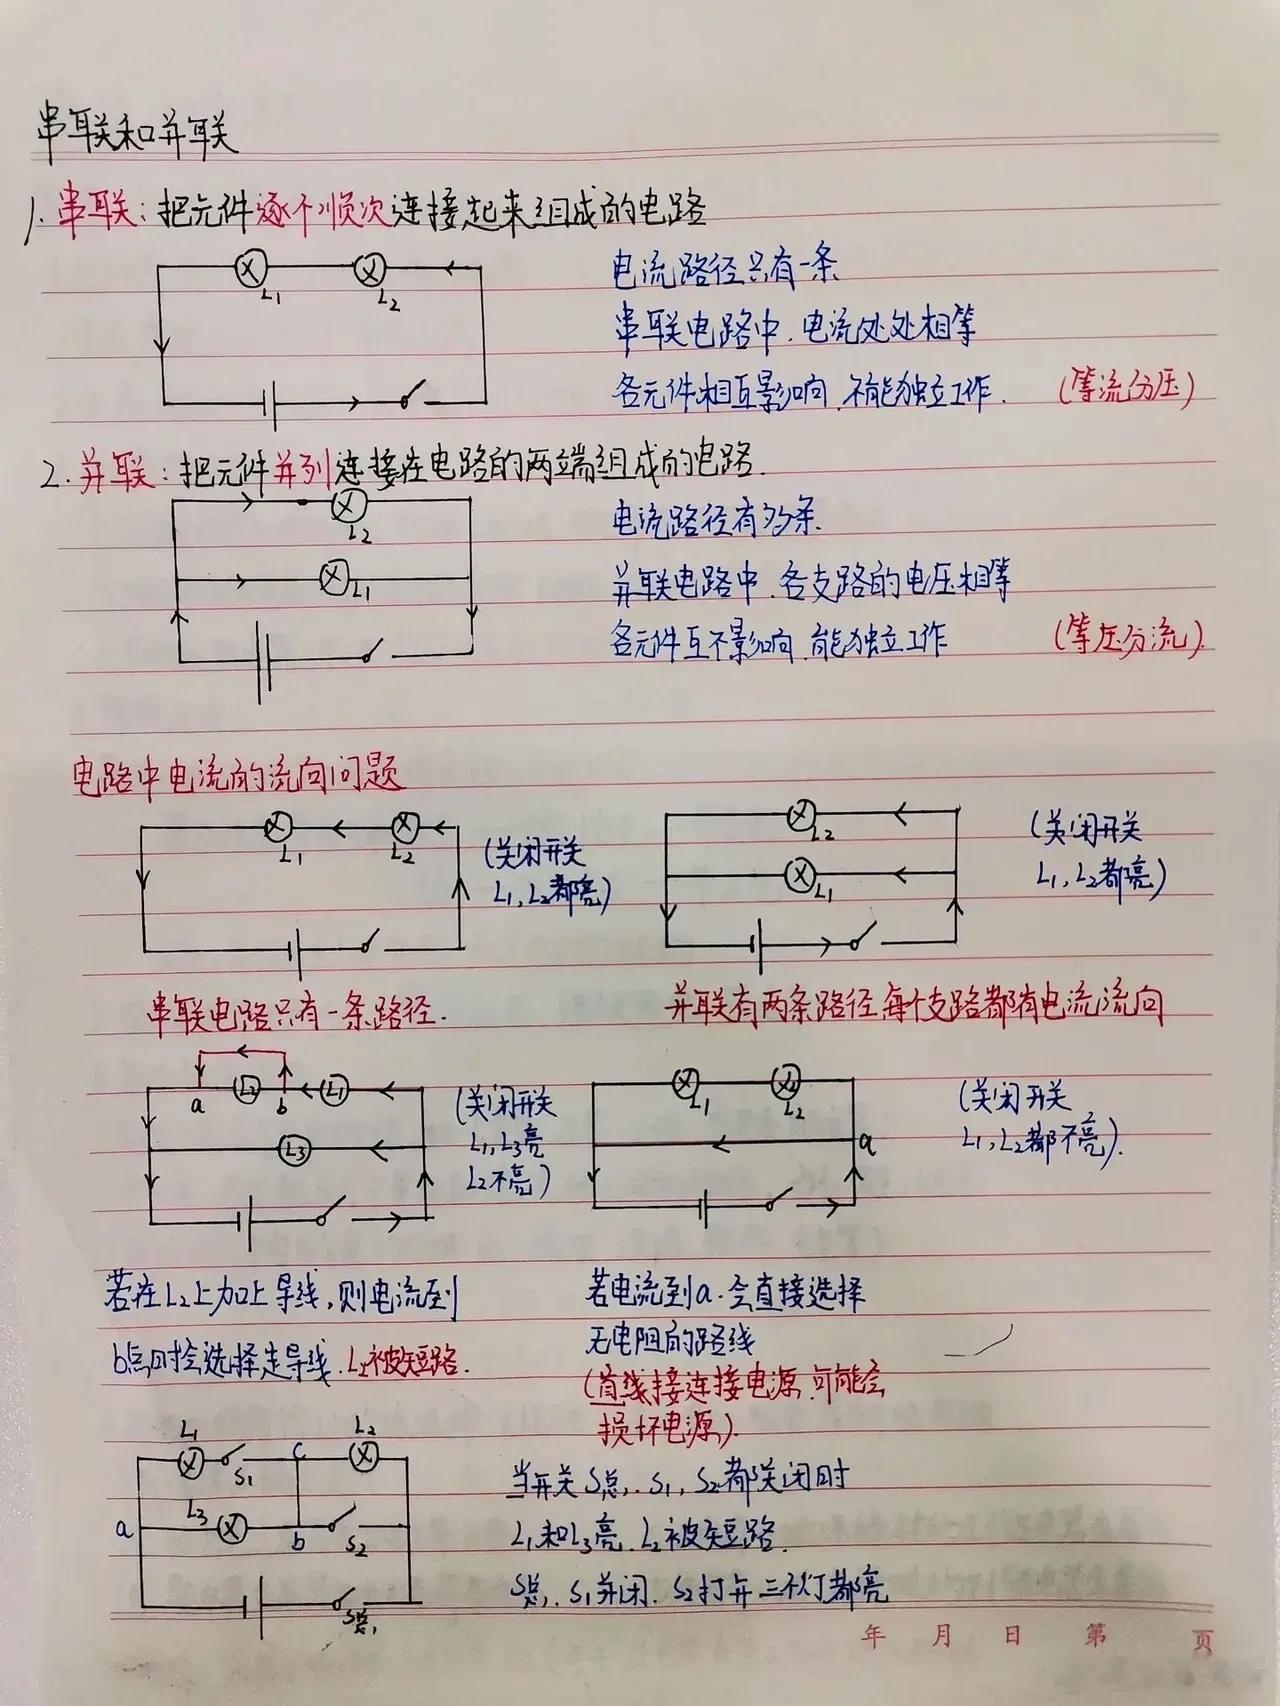 串联和并联
1. 串联：把元件逐个顺次连接起来组成的电路
L₁ L₂
电流路径只有一条
串联电路中.电流处处相等
各元件相互影响.不能独立工作. (等流分压)
2. 并联：把元件并列连接在电路的两端组成的电路.
L₂
L₁
电流路径有多条.
并联电路中.各支路的电压相等
各元件互不影响.能独立工作 (等压分流).
电路中电流的流向问题
L₁ L₂
(关闭开关
L₁, L₂都亮)
L₂
L₁
(关闭开关
L₁, L₂都亮)
串联电路只有一条路径.
并联有两条路径,每个支路都有电流流向
L₂ L₁
a b
L₃
(关闭开关
L₁, L₃亮
L₂不亮)
L₁ L₂
a
(关闭开关
L₁, L₂都不亮).
若在L₂上加上导线,则电流到
b点时会选择走导线.L₂被短路.
若电流到a.会直接选择
无电阻的路线
(直线接连接电源.可能会
损坏电源).
L₁ S₁ c L₂
a L₃ b S₂
S总,
当开关S总,.S₁, S₂都关闭时
L₁和L₃亮.L₂被短路.
S总,.S₁并闭.S₂打开三个灯都亮
年 月 日 第 页